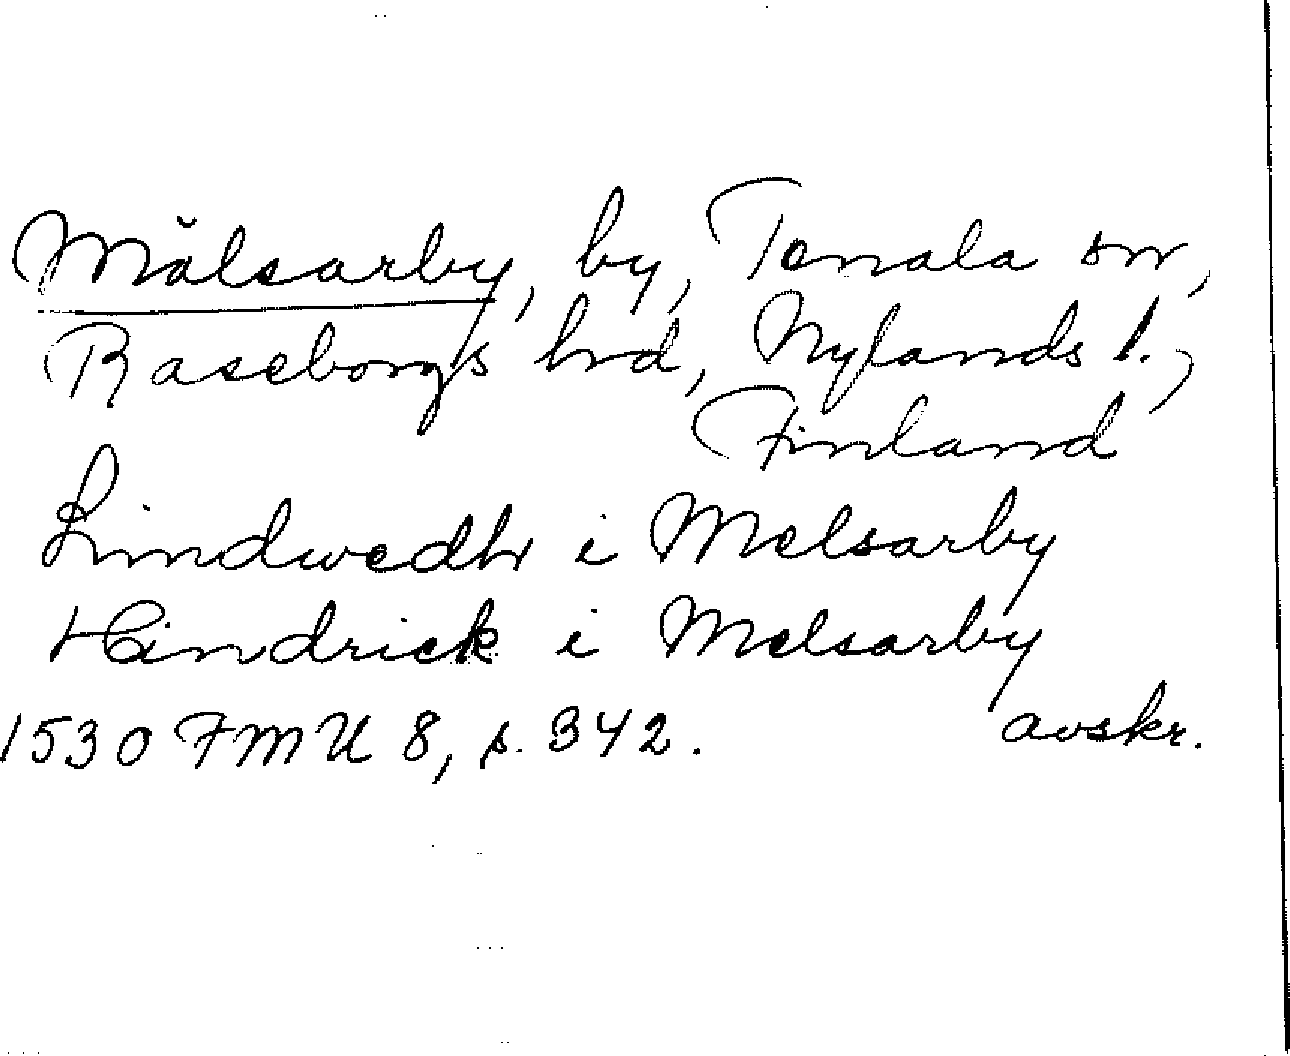 Mälsarby, by, Tenala sn,
Raseborgs hrd, Nylands l.,
Finland
Lindwedh i Melsarby
Hindrick i Melsarby
1530 FMU 8, s. 342. avskr.